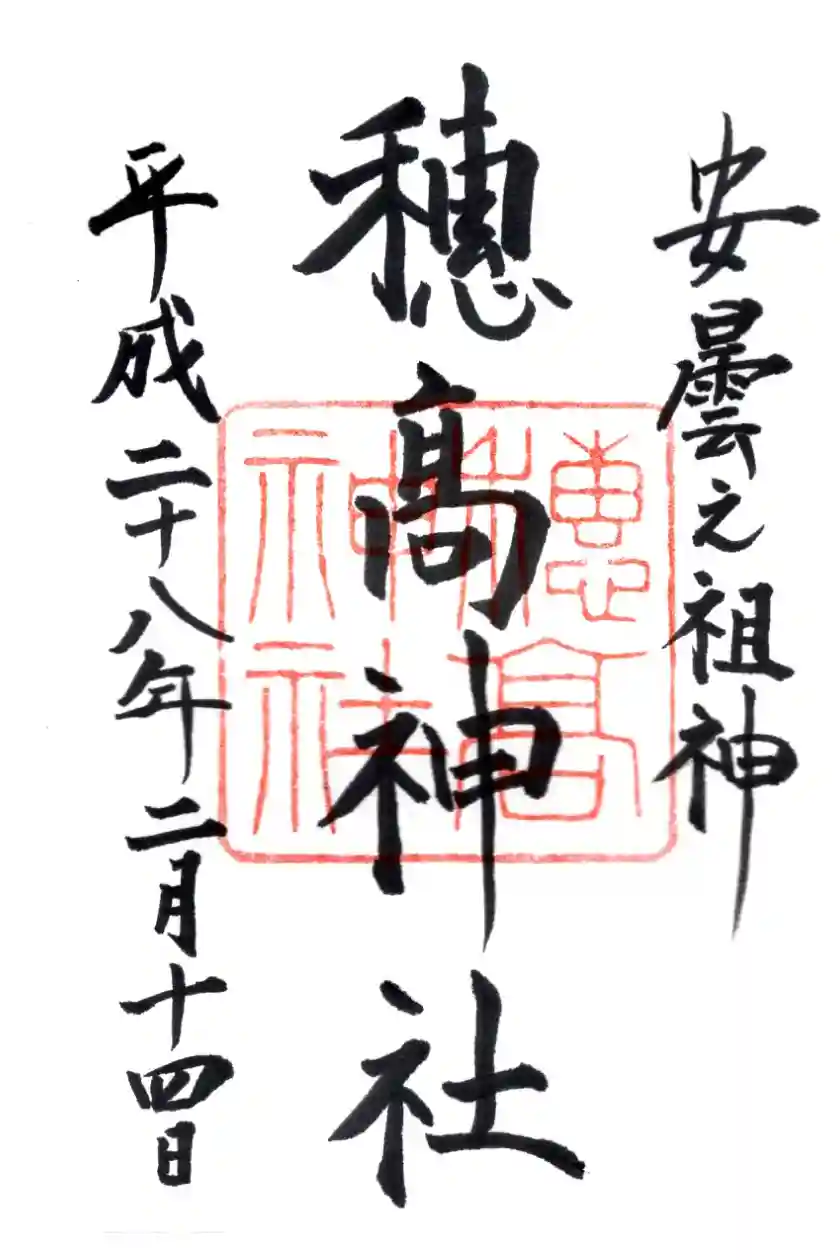 安曇之祖神
穂髙神社
穗高神社
平成二十八年二月十四日